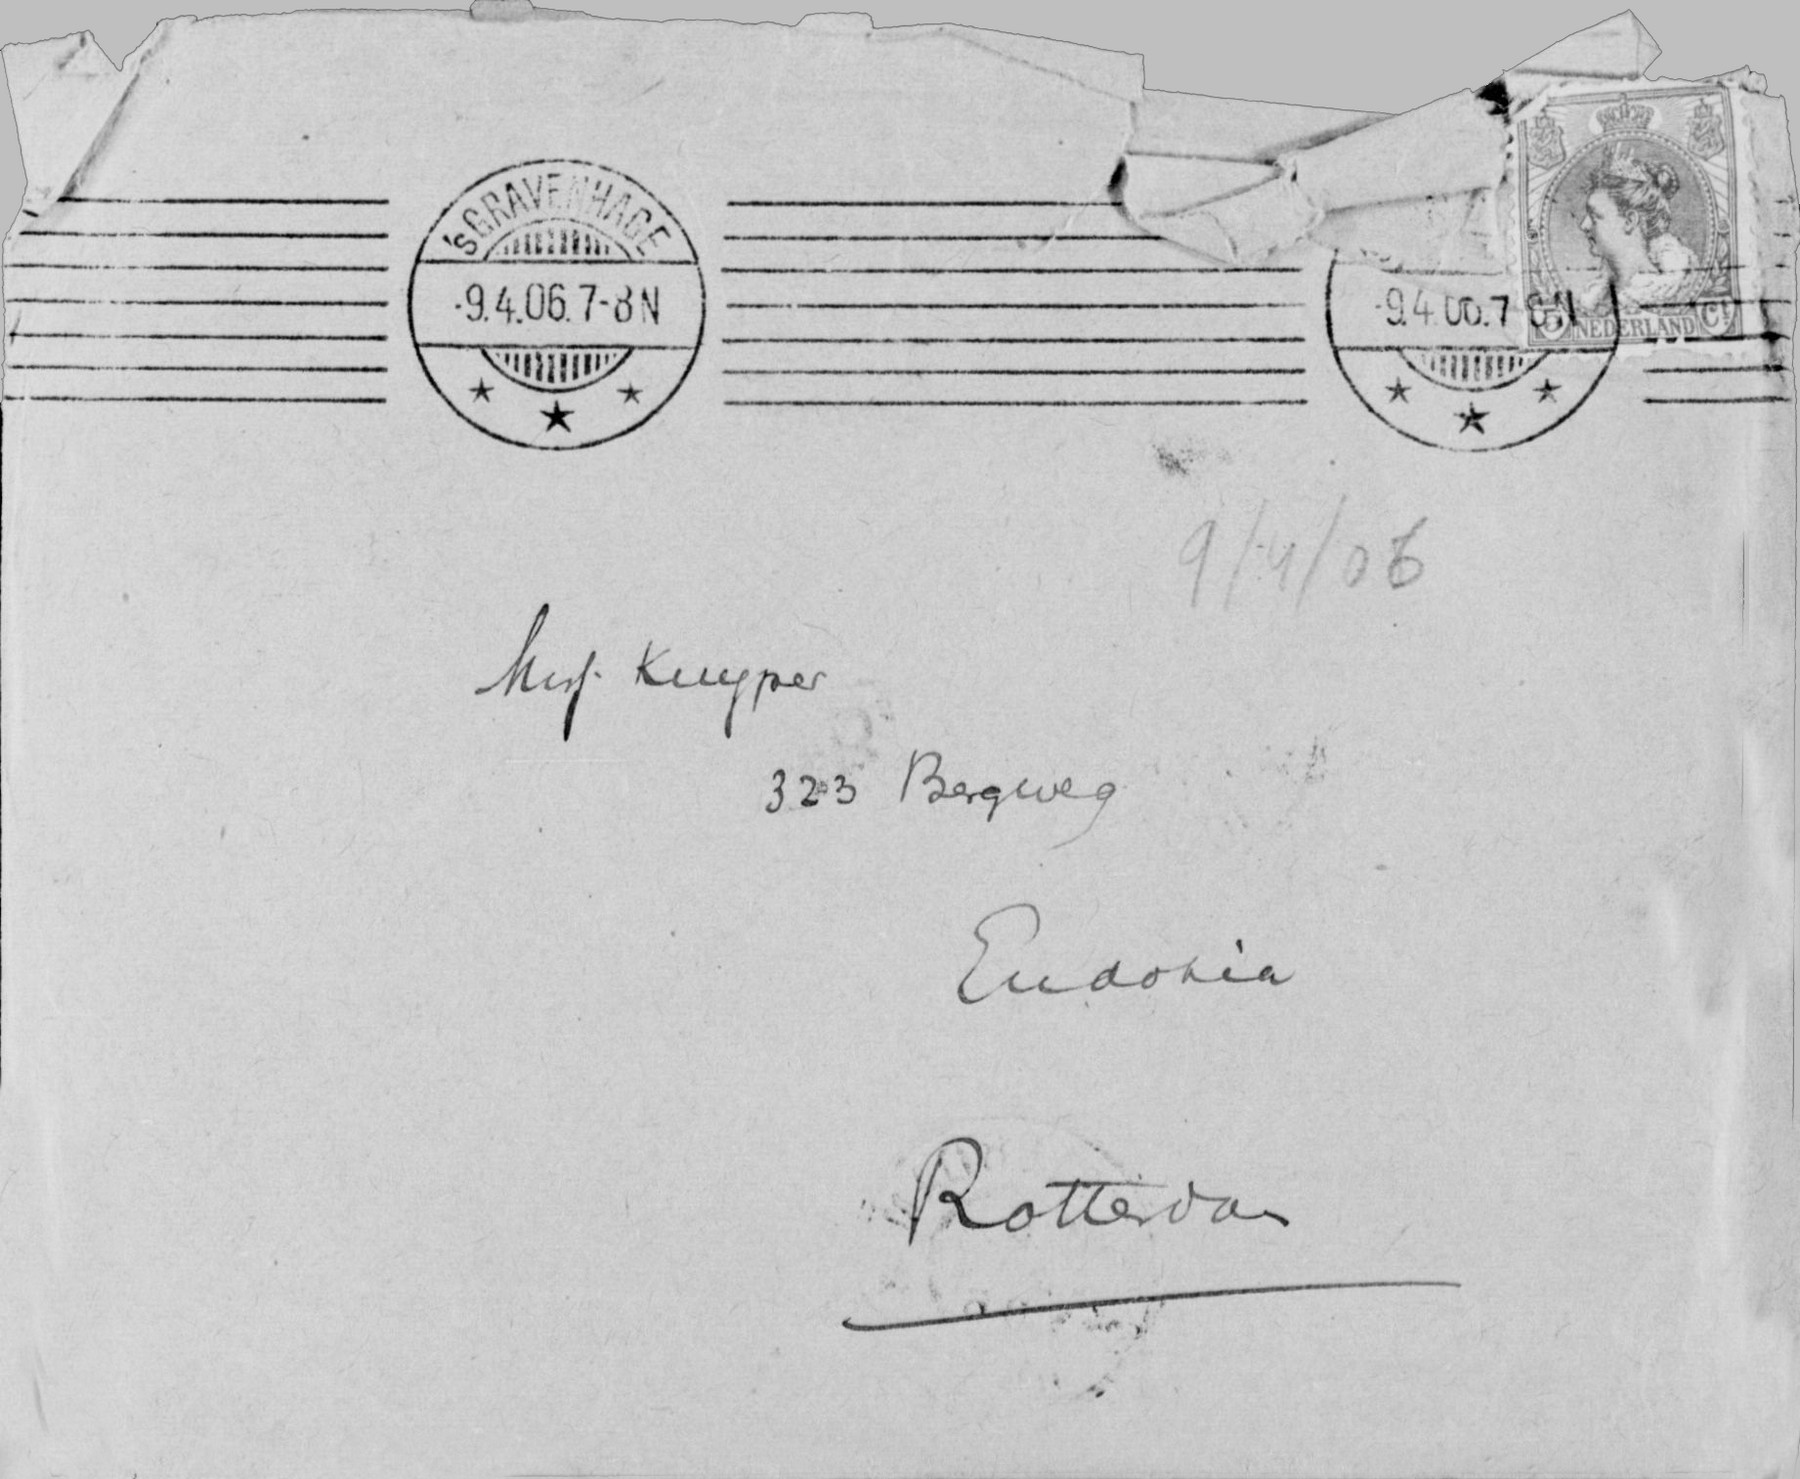 'sGRAVENHAGE
-9.4.06.7-8N
-9.4.06.7-8N
5 NEDERLAND Ct
9/4/06
Mej. Kuyper
323 Bergweg
Eudokia
Rotterdam